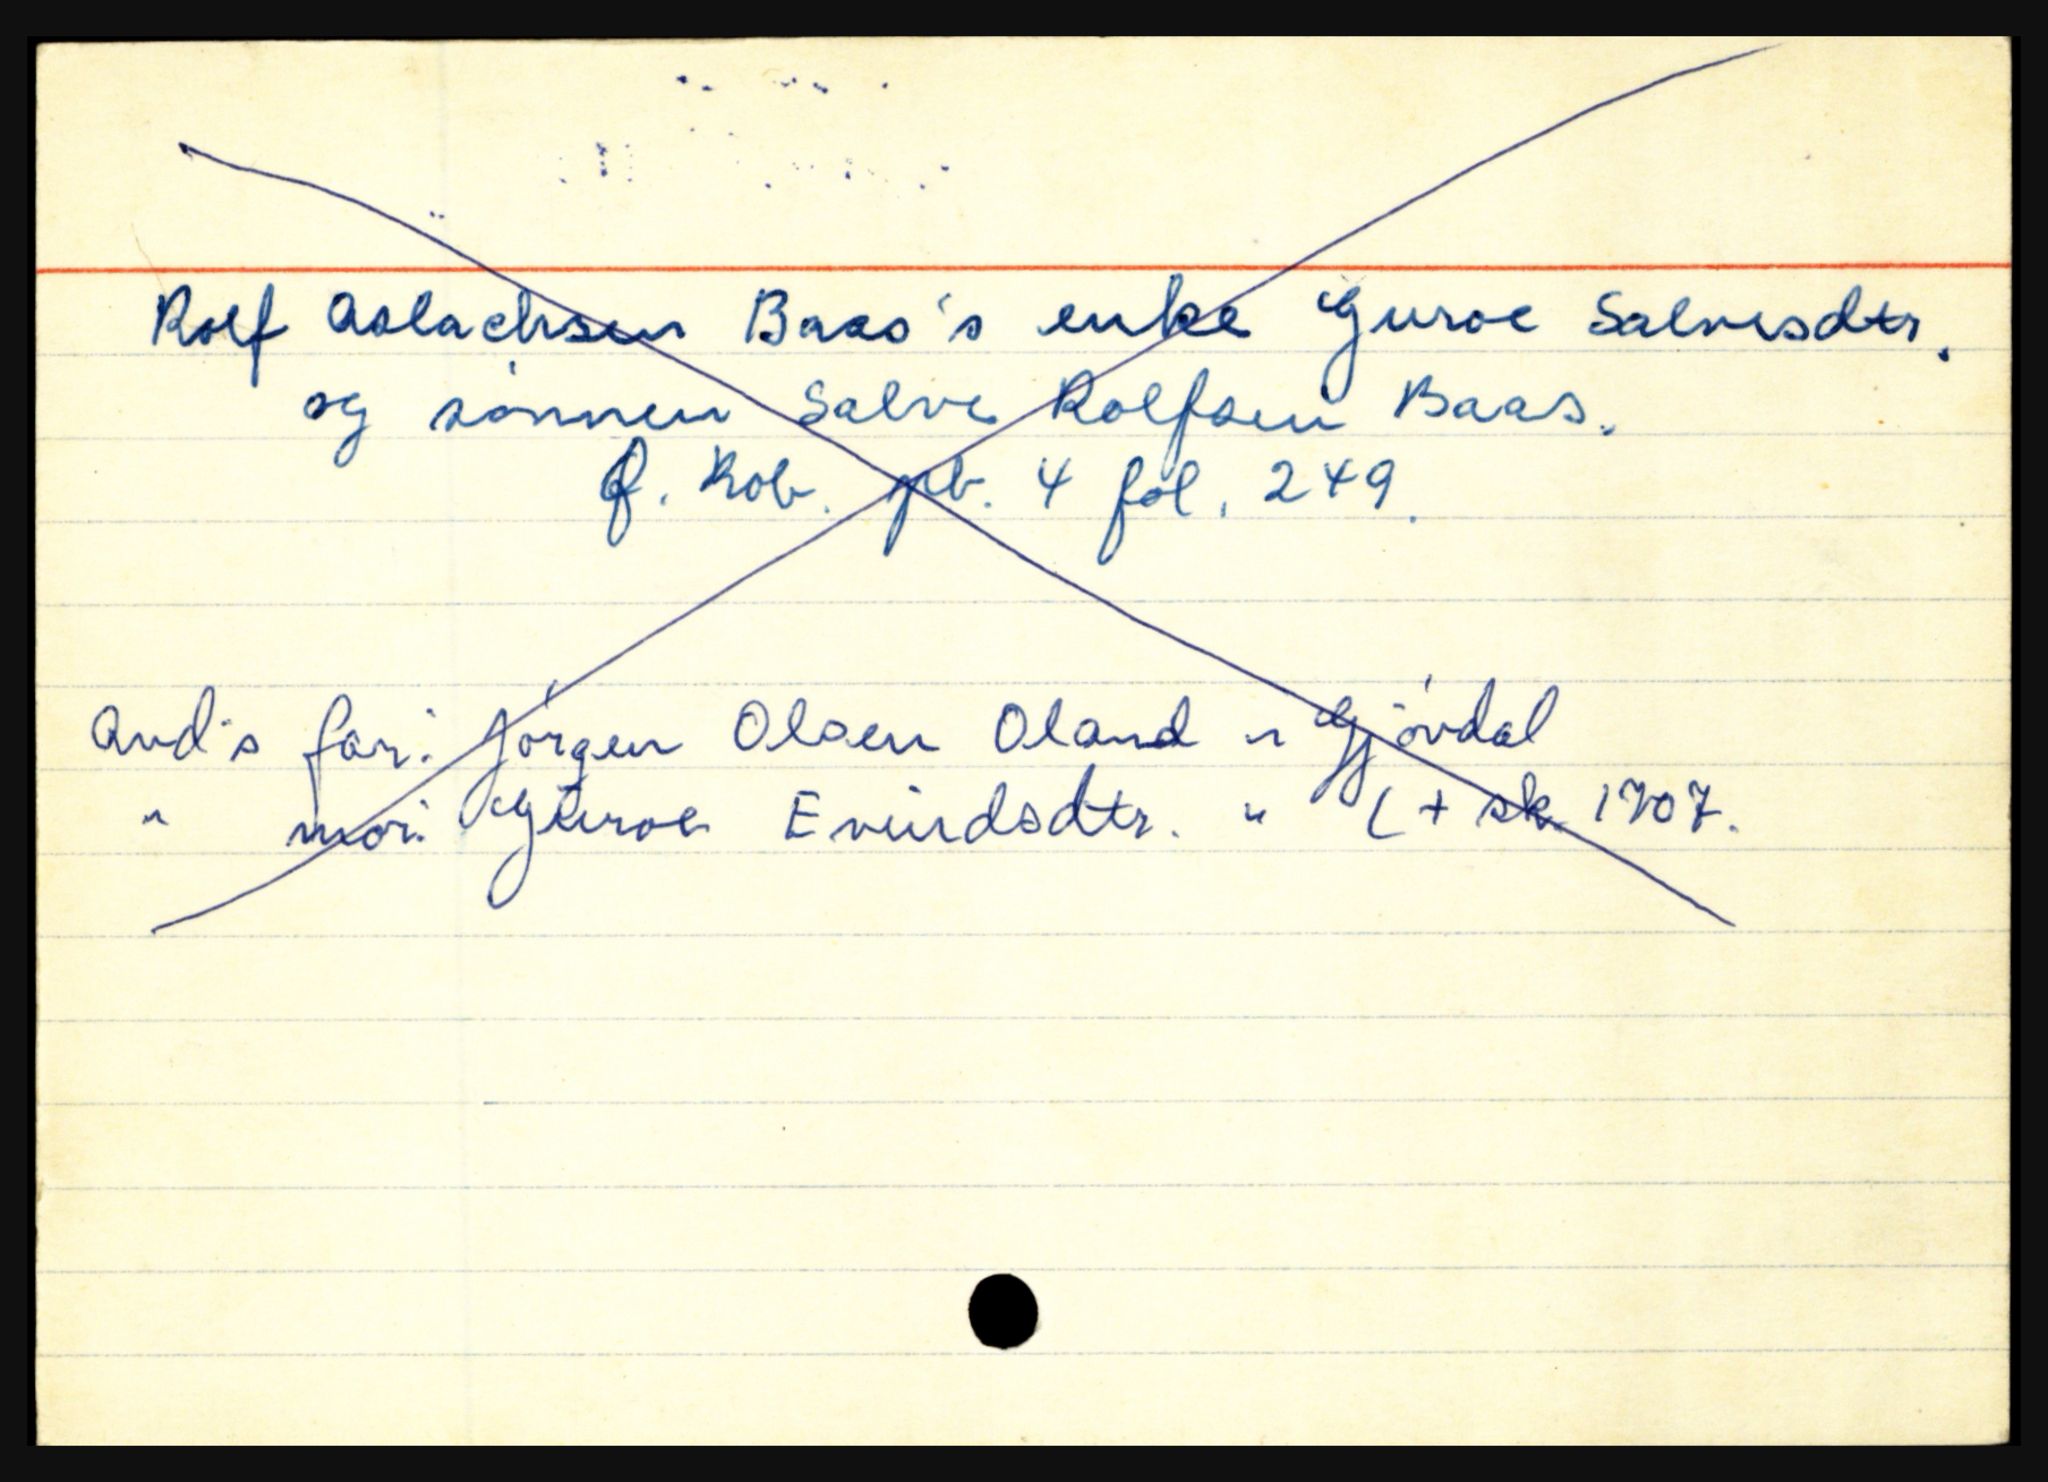 Rolf Aslachsen Baas's enke Guroe Salvesdtr.
og sønnen Salve Rolfsen Baas.
f. Rob. pb. 4 fol. 249.
And's far: Jørgen Olsen Oland " Gjøvdal
" mor: Guroe Evindsdtr. " ( + sk. 1707.